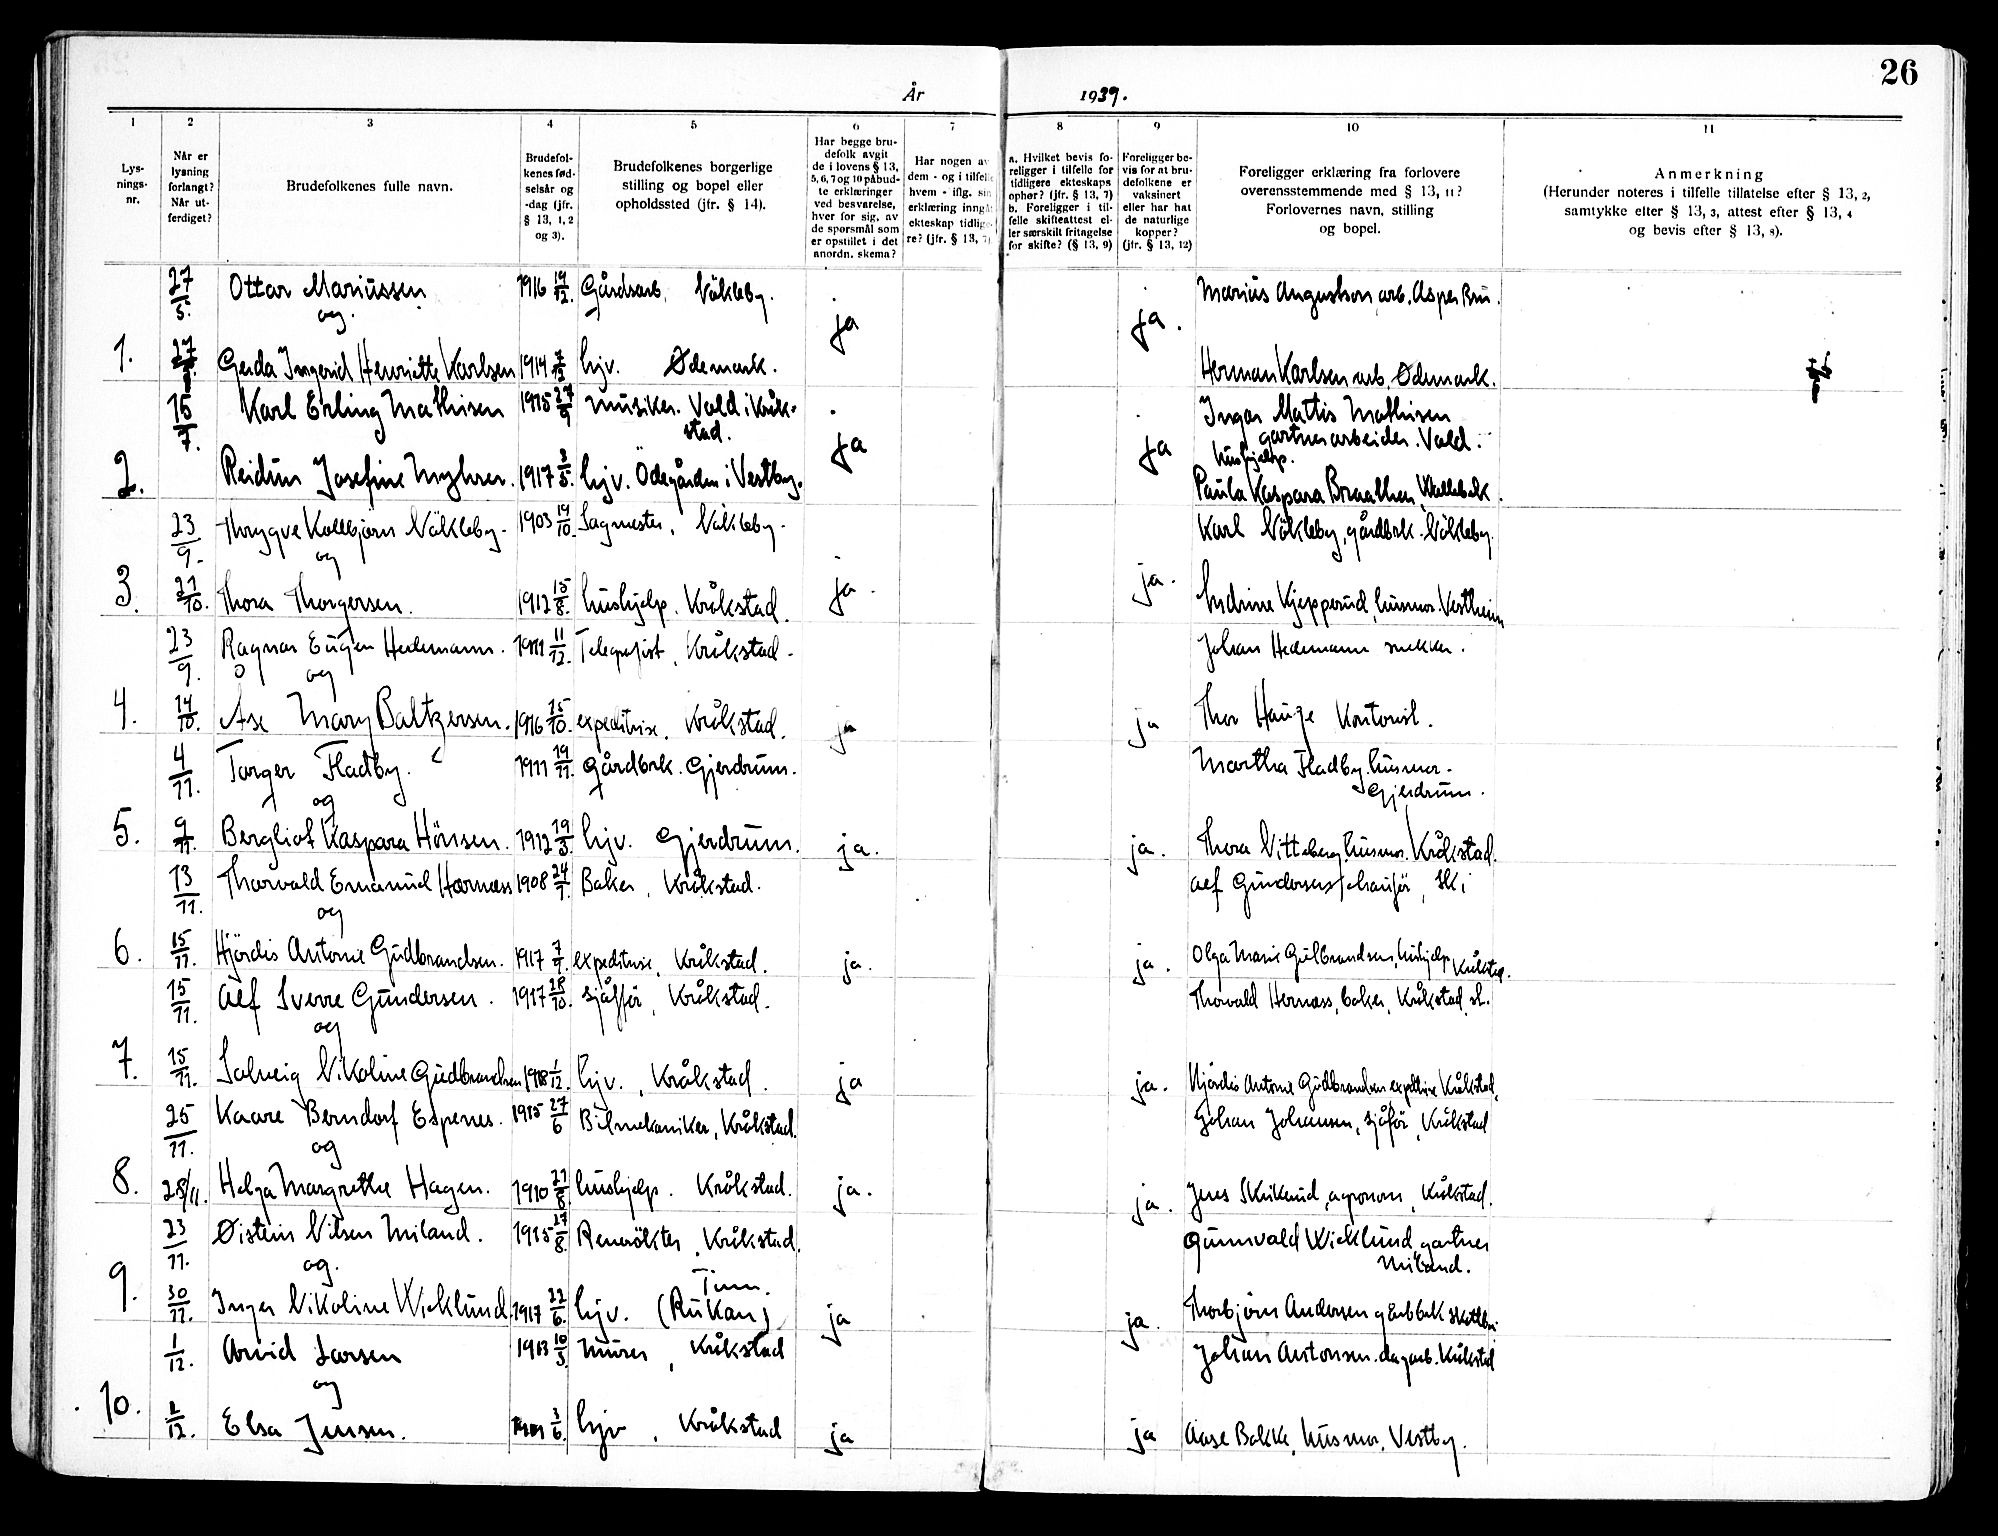 26
År 1939.
1 2 3 4 5 6 7 8 9 10 11
Lys-
nings-
nr.
Når er
lysning
forlangt?
Når ut-
ferdiget?
Brudefolkenes fulle navn.
Brudefol-
kenes fød-
selsår og
-dag (jfr.
§ 13, 1, 2
og 3).
Brudefolkenes borgerlige
stilling og bopel eller
opholdssted (jfr. § 14).
Har begge bru-
defolk avgit
de i lovens § 13,
5, 6, 7 og 10 påbud-
te erklæringer
ved besvarelse,
hver for sig, av
de spørsmål som
er opstillet i det
anordn. skema?
Har nogen av
dem - og i tilfelle
hvem - iflg. sin
erklæring inngåt
ekteskap tidlige-
re? (jfr. § 13, 7)
a. Hvilket bevis fo-
religger i tilfelle for
tidligere ekteskaps
ophør? (jfr. § 13, 7)
b. Foreligger i til-
felle skifteattest el-
ler særskilt fritagelse
for skifte? (§ 13, 9)
Foreligger be-
vis for at bru-
defolkene er
vaksinert
eller har hat
de naturlige
kopper?
(jfr. § 13, 12)
Foreligger erklæring fra forlovere
overensstemmende med § 13, 11?
Forlovernes navn, stilling
og bopel.
Anmerkning
(Herunder noteres i tilfelle tillatelse efter § 13, 2,
samtykke efter § 13, 3, attest efter § 13, 4
og bevis efter § 13, 8).
27/5. Ottar Mariussen 1916 19/12. Gårdsarb. Nökleby. Marius Augustson arb. Asper Bru.
og. ja ja.
1. 27 Gerda Ingerid Henriette Karlsen 1914 7/12 hjv. Ødemark. Herman Karlsen arb. Ødemark.
15/7. Karl Erling Mathisen 1915 27/9 Musiker. Vold i Kråk-
stad. Ingar Mattis Mathisen
gartnerarbeider. Vold.
ja ja hushjelp.
2. Reidun Josefine Myhrer. 1917 3/5. hjv. Ödegården i Vestby. Paula Kaspara Braathen,
23/9. Thrygve Kolbjørn Nökleby. 1903 19/10. Sagmester, Nökleby. Karl Nökleby, gårdbrk. Nökleby.
og ja. ja.
3. 21/10. Thora Thorgersen. 1912 15/8. hushjelp. Kråkstad. Indrine Kjepperud, husmor. Vestheim
23/9. Ragnar Eugen Hedemann. 1911 11/12. Telegrafist, Kråkstad. Johan Hedemann snekker.
og
4. 14/10. Åse Mary Baltzersen. 1916 15/10. expeditrise. Kråkstad. ja ja Thor Hauge Kontorist.
4/11. Torger Fladby. 1911 19/11. Gårdbrk. Gjerdrum. Martha Fladby. husmor.
Gjerdrum.
og
5. 9/11. Bergliot Kaspara Hönsen. 1912 19/3. hjv. Gjerdrum. ja. ja. Thora Vitteberg. husmor. Kråkstad.
13/11. Thorvald Emanuel Hærnæss 1908 24/9. Baker, Kråkstad. Alf Gundersen, chauför, Ski
og
6. 15/11. Hjördis Antonie Gudbrandsen. 1917 7/9. expeditrise, Kråkstad. ja. ja. Olga Marie Gulbrandsen, hushjelp Kråkstad.
15/11. Alf Sverre Gundersen. 1917 28/10. sjåfför, Kråkstad. Thorvald Hernæss, baker, Kråkstad st.
og
7. 15/11. Solveig Nikoline Gudbrandsen 1918 1/12. hjv., Kråkstad. ja ja. Hjördis Antonie Gudbrandsen expeditrise Kråkstad.
25/11. Kaare Berndorf Espenes. 1915 27/6 Bilmekaniker, Kråkstad. Johan Johansen, sjåför, Kråkstad
og
8. 28/11. Helga Margrethe Hagen. 1910 21/8 hushjelp. Kråkstad. ja. ja. Jens Skikrud, agronom, Kråkstad.
23/11. Øistein Nilsen Miland. 1915 27/8. Renrökter, Kråkstad. Gunnvald Wicklund, gartner
Miland.
og. Tinn.
9. 30/11. Inger Nikoline Wicklund. 1917 22/6. hjv. (Rukan) ja ja. Thorbjörn Andersen gårdbrk
1/12. Arvid Larsen 1913 10/3 Murer, Kråkstad Johan Antonsen. dagarb. Kråkstad
og
10. 1/12. Elsa Jensen. 3/6. hjv, Kråkstad ja ja Aase Bakke, husmor, Vestby.